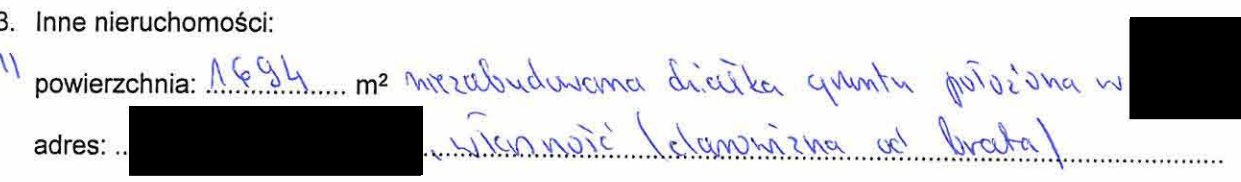 3. Inne nieruchomości:
1) powierzchnia: 1694 m² niezabudowana działka gruntu położona w
adres: .. , własność (darowizna od brata)